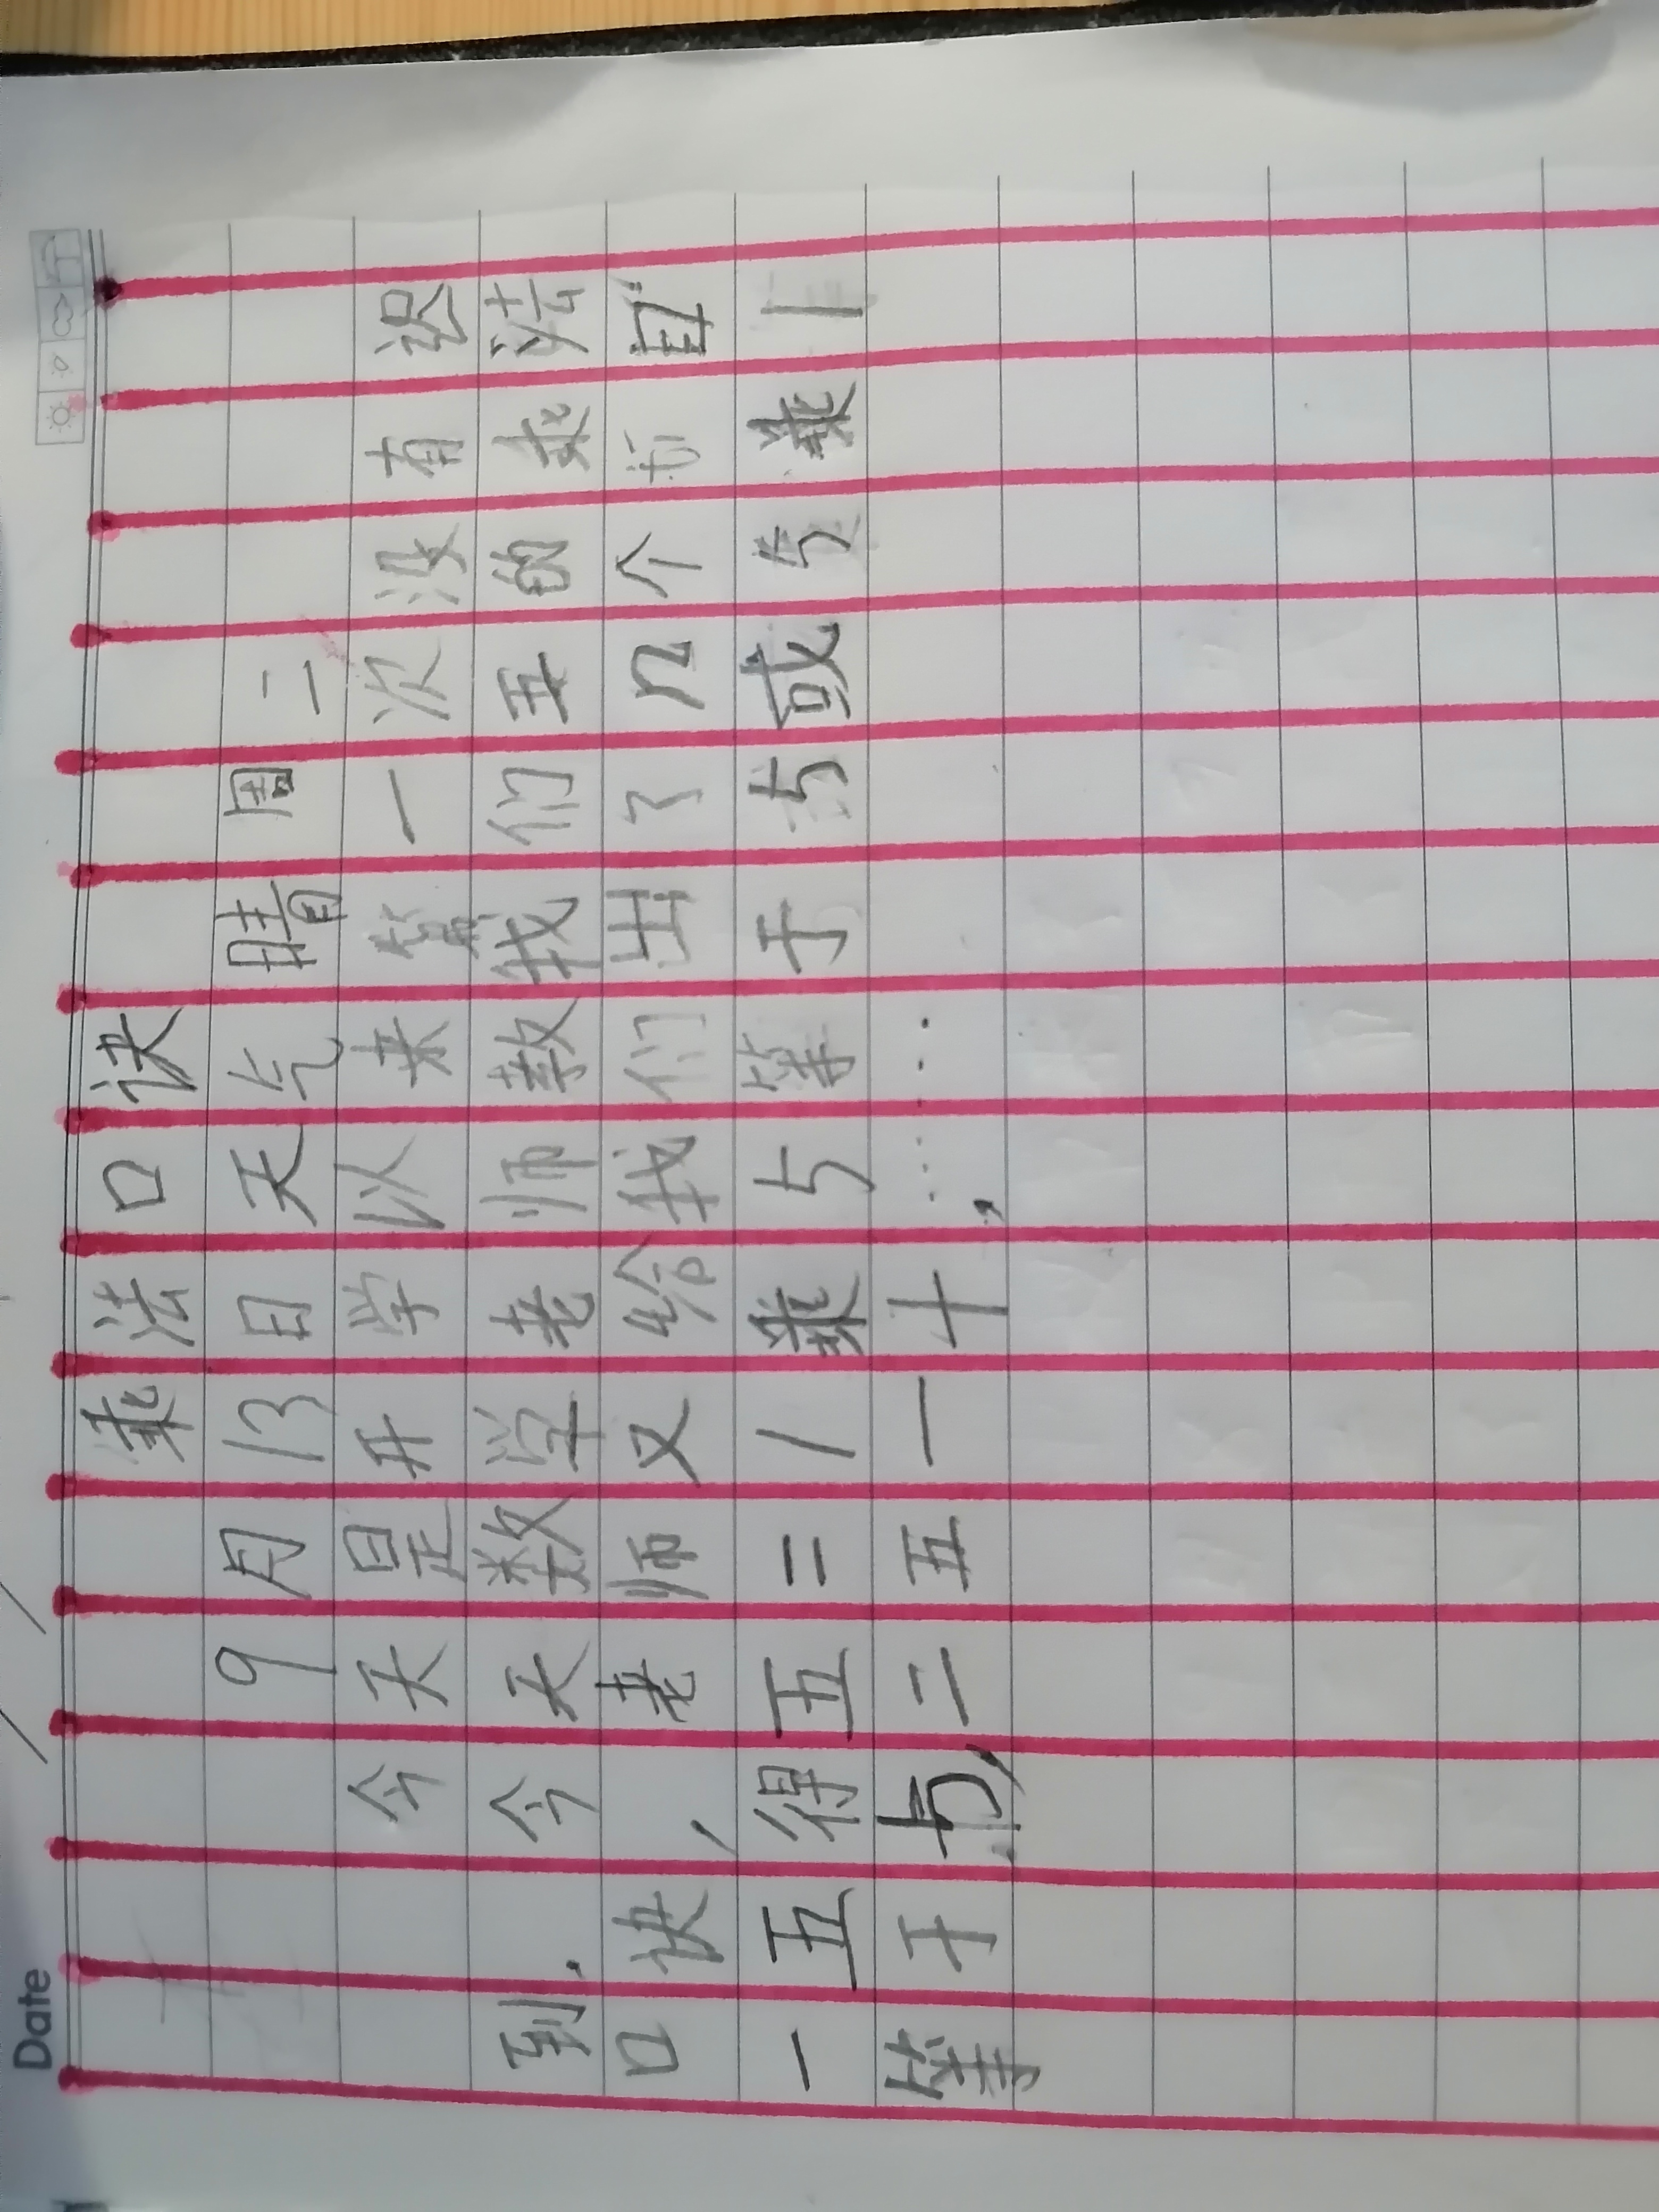 乘法口诀
9月13日天气晴 周二
今天是开学以来第一次没有迟
到.今天数学老师教我们五的乘法
口诀,老师又给我们出了几个
一五得五=1乘5等于5或5乘1
等于5,二五一十,......